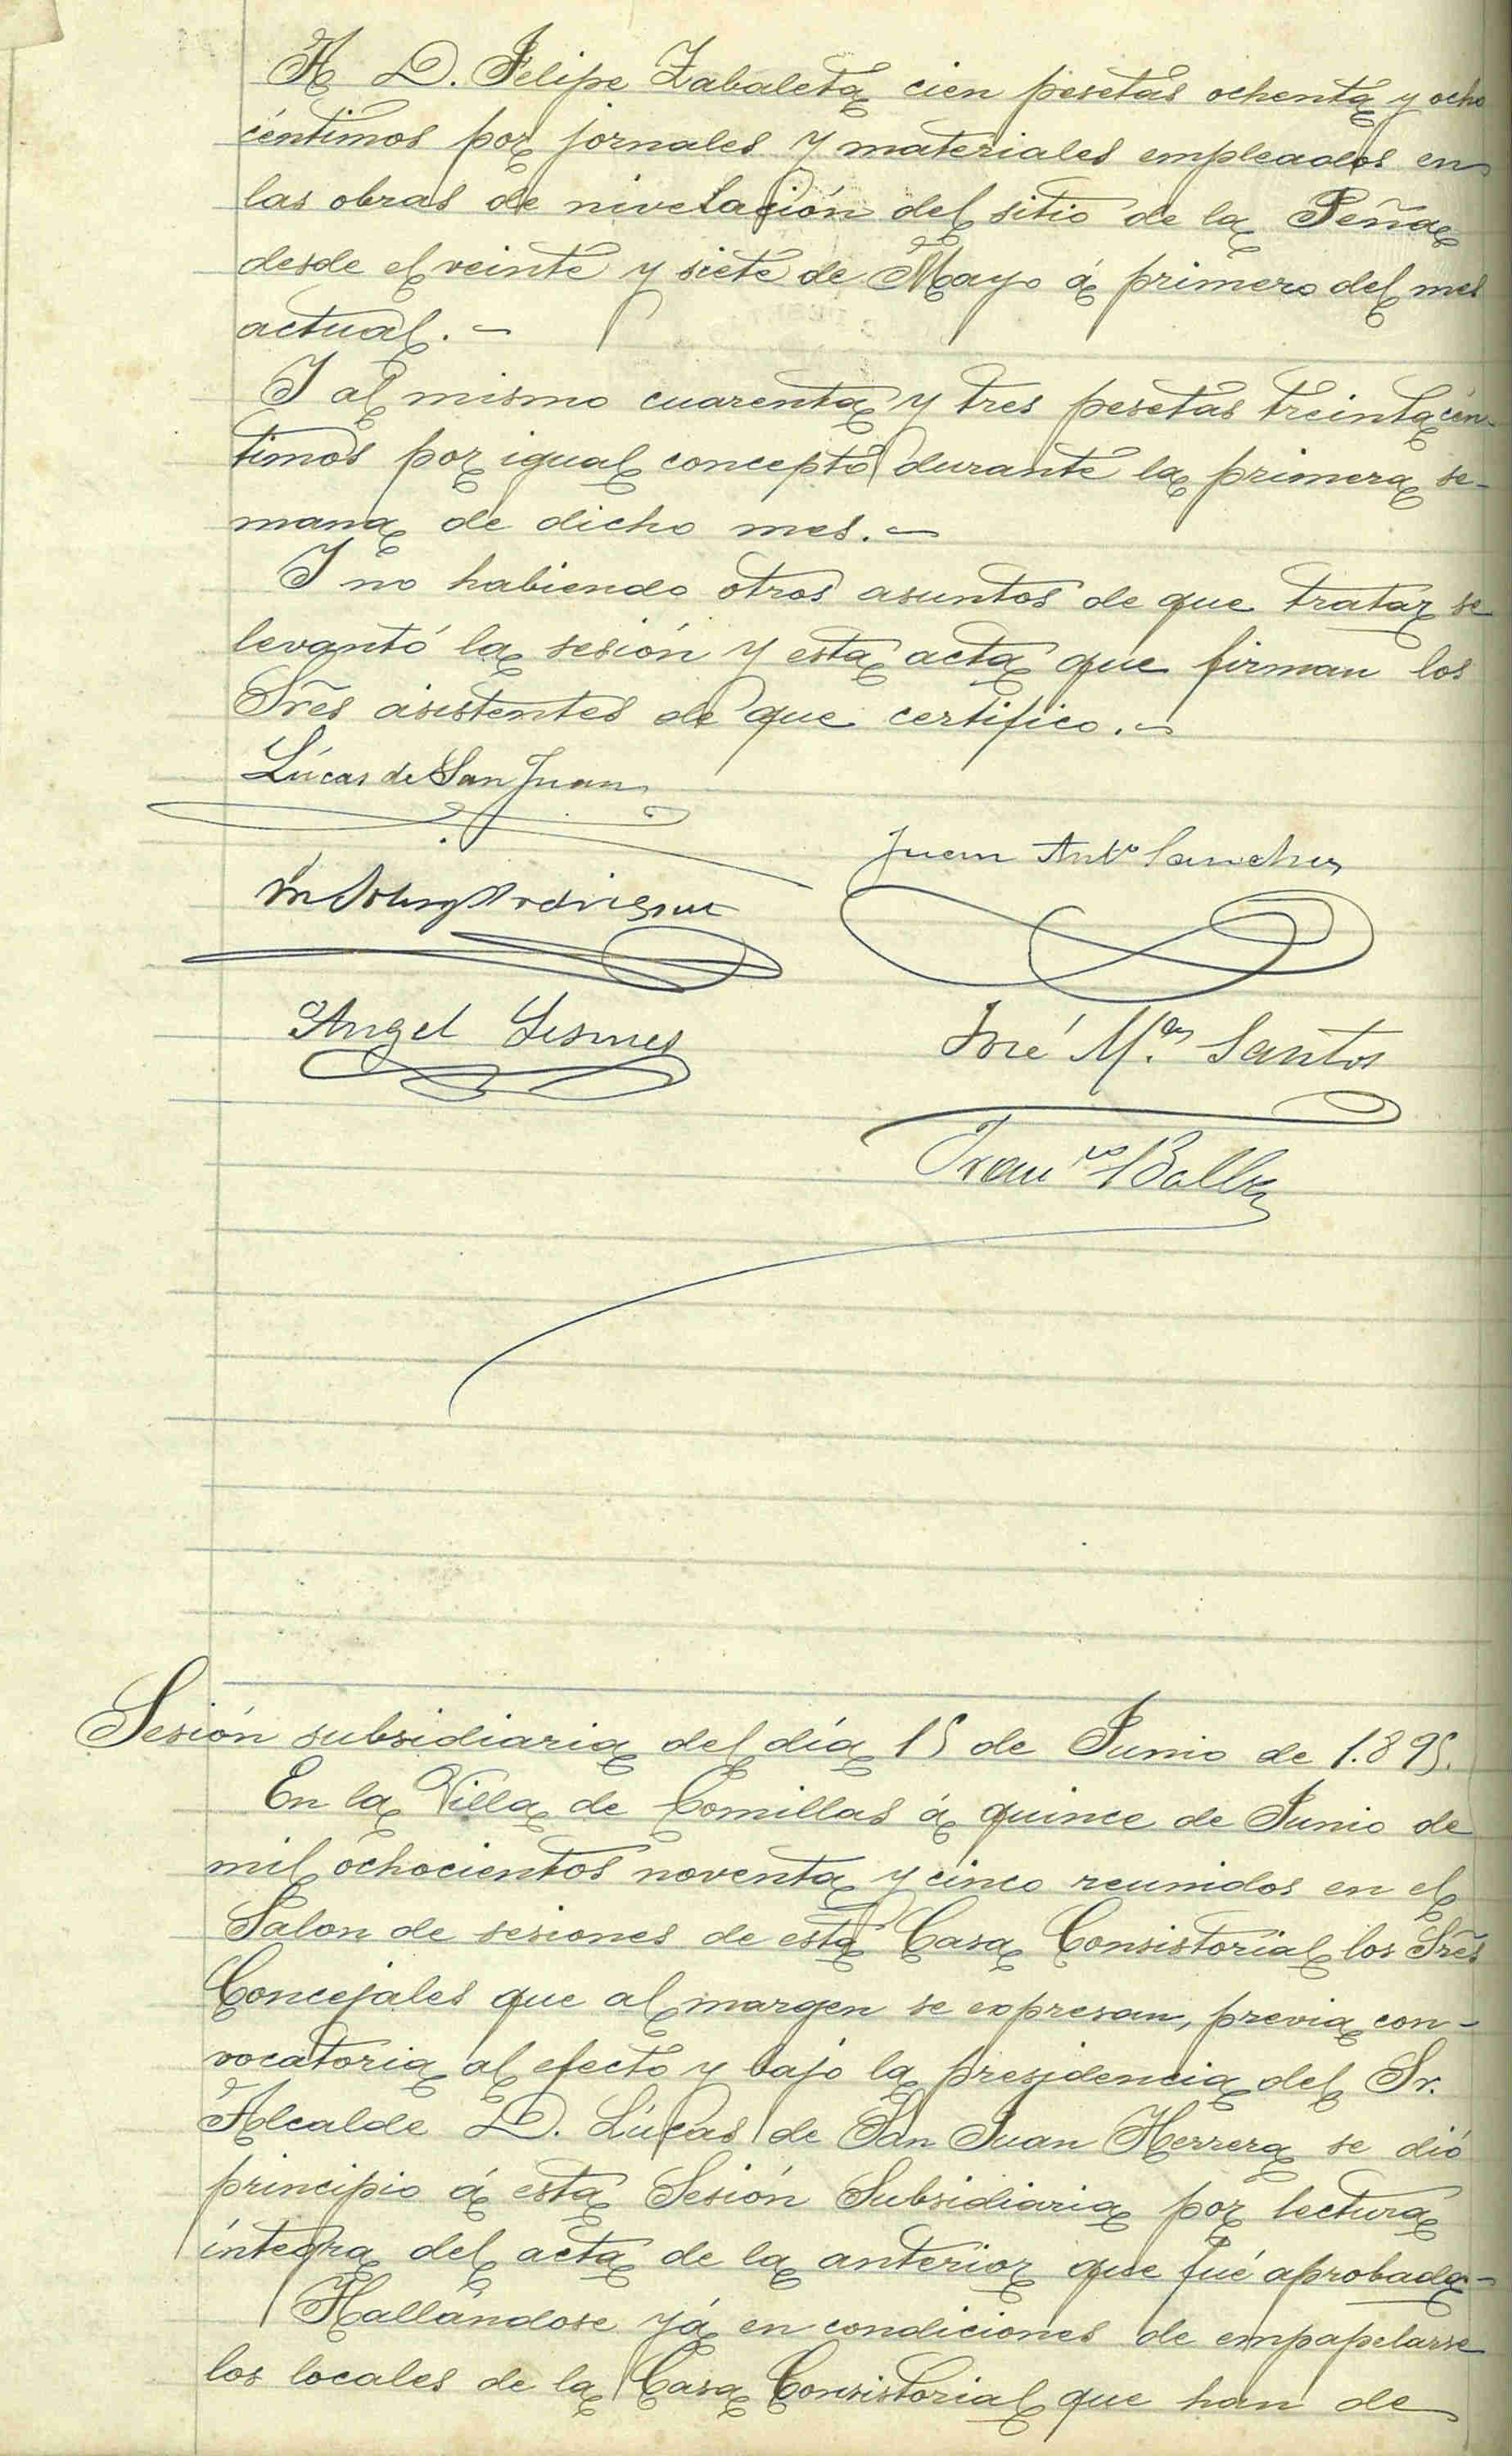 A D. Felipe Zabaleta cien pesetas ochenta y ocho
céntimos por jornales y materiales empleados en
las obras de nivelación del sitio de la Peña
desde el veinte y siete de Mayo á primero del mes
actual.-
Y al mismo cuarenta y tres pesetas treinta cén-
timos por igual concepto durante la primera se-
mana de dicho mes.-
Y no habiendo otros asuntos de que tratar se
levantó la sesión y esta acta que firman los
Sres asistentes de que certifico.-
Lúcas de San Juan
Juan Anto Sanchez
Angel Lesmes
José M.a Santos
Franco
Sesión subsidiaria del día 15 de Junio de 1.895.
En la Villa de Comillas á quince de Junio de
mil ochocientos noventa y cinco reunidos en el
Salon de sesiones de esta Casa Consistorial los Sres
Concejales que al margen se expresan, previa con-
vocatoria al efecto y bajo la presidencia del Sr.
Alcalde D. Lúcas de San Juan Herrera se dió
principio á esta Sesión Subsidiaria por lectura
íntegra del acta de la anterior que fué aprobada-
Hallándose yá en condiciones de empapelarse
los locales de la Casa Consistorial que han de